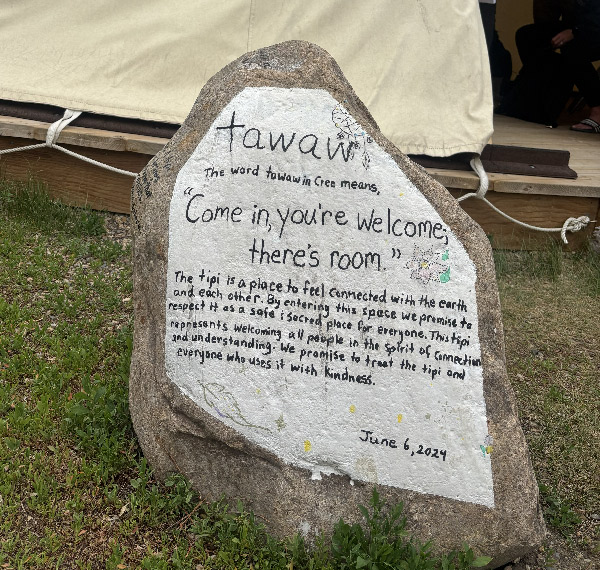 tawaw
The word tawaw in Cree means,
"Come in, you're welcome;
there's room."
The tipi is a place to feel connected with the earth
and each other. By entering this space we promise to
respect it as a safe i sacred place for everyone. This tipi
represents welcoming all people in the spirit of connection
and understanding. We promise to treat the tipi and
everyone who uses it with kindness.
June 6, 2024